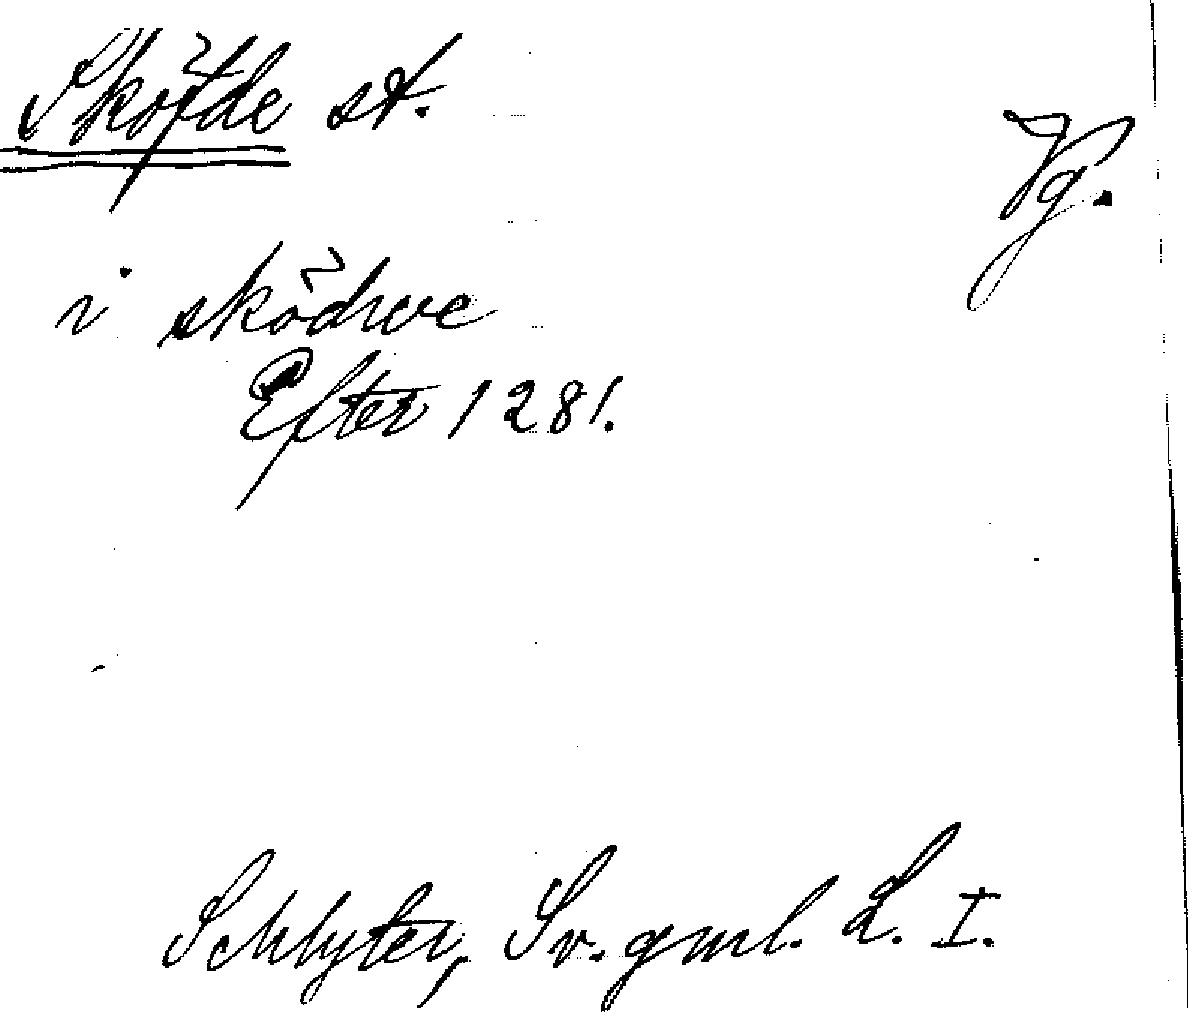 Sköfde st.
Vg.
i sködwe
Efter 1281.
Schlyter, Sv. gml. L. I.